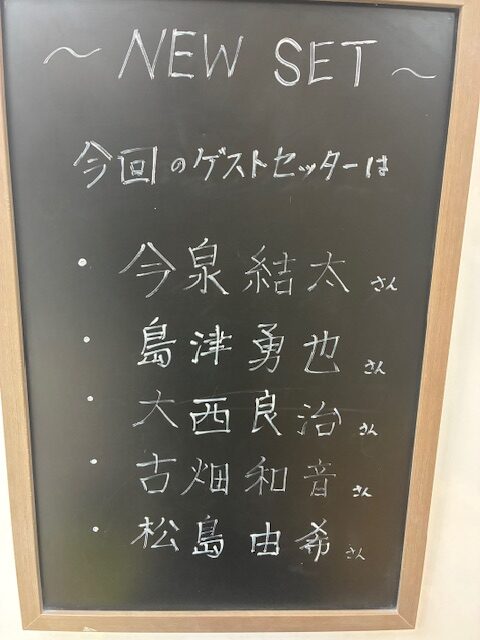 ～ NEW SET ～
今回のゲストセッターは
・ 今泉結太さん
・ 島津勇也さん
・ 大西良治さん
・ 古畑和音さん
・ 松島由希さん